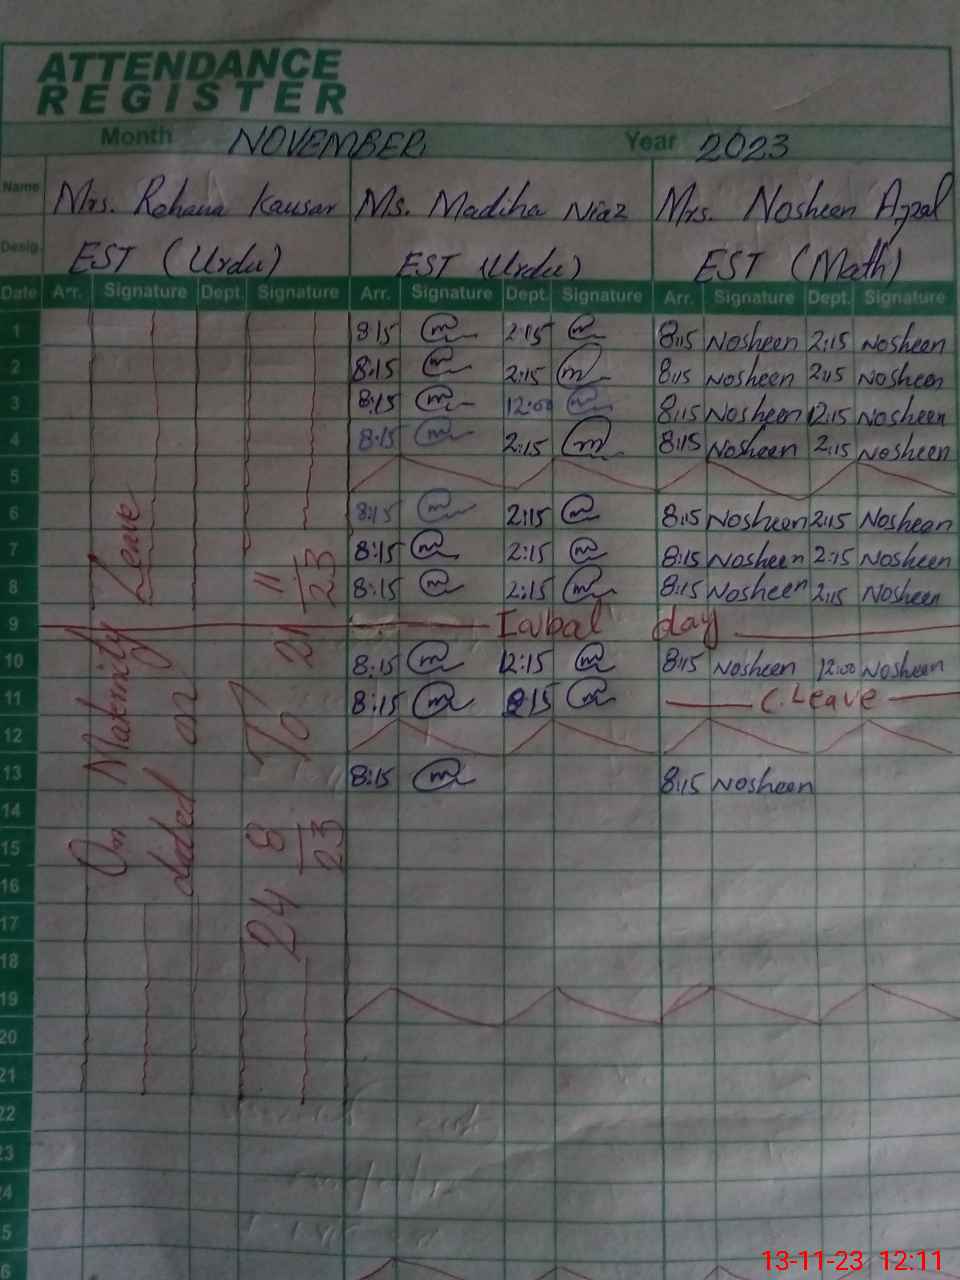 ATTENDANCE
REGISTER
Month NOVEMBER Year 2023
Name Mrs. Rehana Kausar Ms. Madiha Niaz Mrs. Nosheen Afzal
Desig. EST (Urdu) EST (Urdu) EST (Math)
Date Arr. Signature Dept. Signature Arr. Signature Dept. Signature Arr. Signature Dept. Signature
1 8:15 2:15 8:15 Nosheen 2:15 Nosheen
2 8:15 2:15 8:15 Nosheen 2:15 Nosheen
3 8:15 12:00 8:15 Nosheen 12:15 Nosheen
4 8:15 2:15 8:15 Nosheen 2:15 Nosheen
5
6 8:15 2:15 8:15 Nosheen 2:15 Nosheen
7 8:15 2:15 8:15 Nosheen 2:15 Nosheen
8 8:15 2:15 8:15 Nosheen 2:15 Nosheen
9 Iqbal day
10 8:15 12:15 8:15 Nosheen 12:00 Nosheen
11 8:15 2:15 C.Leave
12
13 8:15 8:15 Nosheen
14
15
16
17
18
19
20
21
22
23
24
5
6
On Maternity Leave
24 8/23 To 21 11/23
13-11-23 12:11